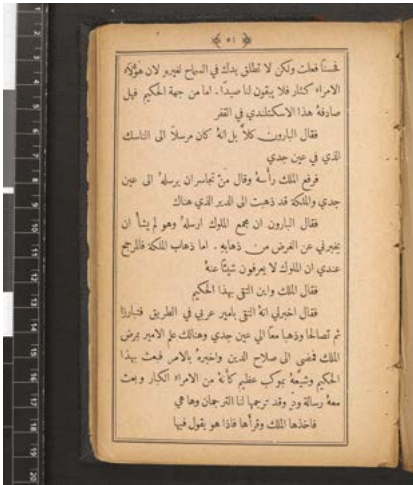 ﴿ ٥٤ ﴾
فحسنًا فعلت ولكن لا تطلق يدك في السماح لغيره لان هؤلاء
الامراء كثار فلا يبقون لنا صيدًا. اما من جهة الحكيم فهل
صادفهُ هذا الاسكتلندي في القفر
فقال البارون كلاَّ بل انهُ كان مرسلاً الى الناسك
الذي في عين جدي
فرفع الملك رأسهُ وقال مَنْ تجاسر ان يرسلهُ الى عين
جدي والملكة قد ذهبت الى الدير الذي هناك
فقال البارون ان مجمع الملوك ارسلهُ وهو لم يشأ ان
يخبرني عن الغرض من ذهابهِ. اما ذهاب الملكة فالمرجح
عندي ان الملوك لا يعرفون شيئًا عنهُ
فقال الملك واين التقى بهذا الحكيم
فقال اخبرني انهُ التقى بامير عربي في الطريق فتبارزا
ثم تصالحا وذهبا معًا الى عين جدي وهنالك علم الامير بمرض
الملك فمضى الى صلاح الدين واخبرهُ بالامر فبعث بهذا
الحكيم وشيَّعهُ بموكب عظيم كأنهُ من الامراء الكبار وبعث
معهُ رسالة ودٍّ وقد ترجمها لنا الترجمان وها هي
فاخذها الملك وقرأها فاذا هو يقول فيها